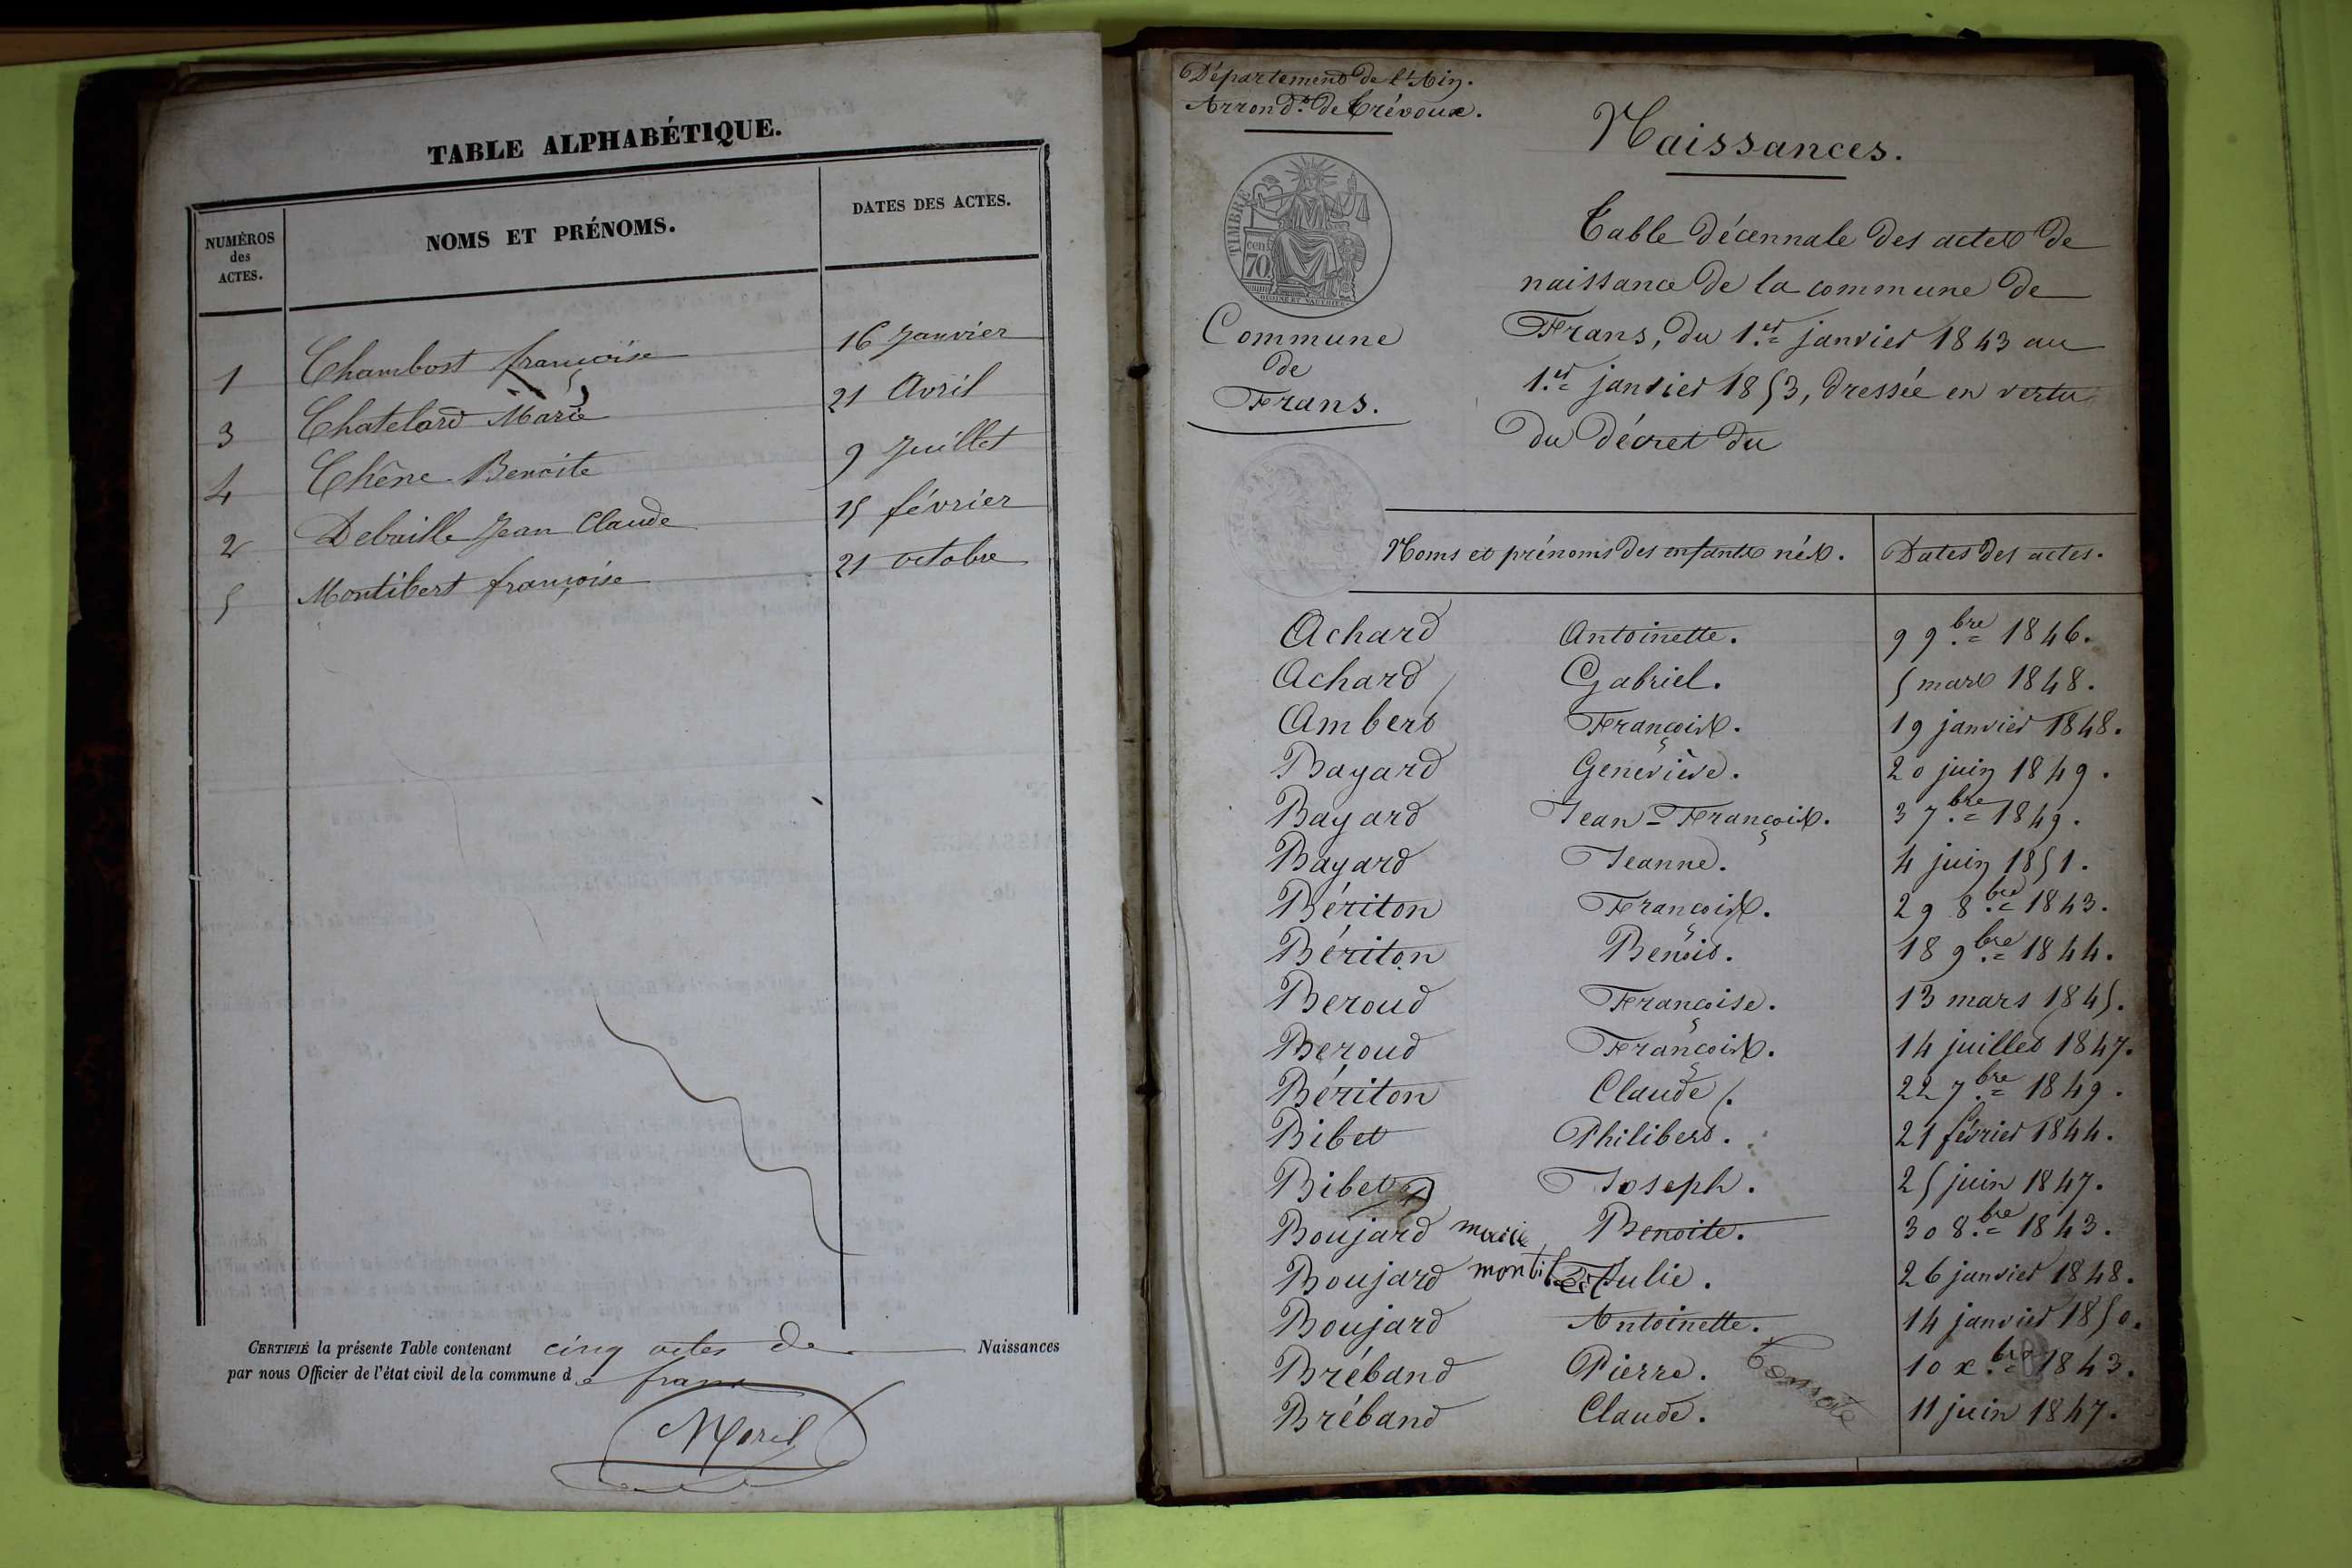 TABLE ALPHABÉTIQUE.
NUMÉROS des ACTES. NOMS ET PRÉNOMS. DATES DES ACTES.
1 Chambost françoise 16 Janvier
3 Chatelard Marie 21 Avril
4 Chêne Benoite 9 Juillet
2 Debaille Jean Claude 15 février
5 Montibert françoise 21 octobre
CERTIFIÉ la présente Table contenant cinq actes de Naissances
par nous Officier de l'état civil de la commune de frans
Morel
Département de l'Ain.
Arrond.t de Trévoux.
TIMBRE
70 cent
Commune
de
Frans.
Naissances.
Table décennale des actes de
naissance de la commune de
Frans, du 1.er janvier 1843 au
1.er janvier 1853, dressée en vertu
du décret du
Noms et prénoms des enfants nés. Dates des actes.
Achard Antoinette. 9 9.bre 1846.
Achard Gabriel. 5 mars 1848.
Ambert François. 19 janvier 1848.
Bayard Geneviève. 20 juin 1849.
Bayard Jean-François. 3 7.bre 1849.
Bayard Jeanne. 4 juin 1851.
Bériton François. 29 8.bre 1843.
Bériton Benoit. 18 9.bre 1844.
Beroud Françoise. 13 mars 1845.
Beroud François. 14 juillet 1847.
Bériton Claude. 22 7.bre 1849.
Bibet Philibert. 21 février 1844.
Bibet Joseph. 25 juin 1847.
Boujard marie Benoite. 30 8.bre 1843.
Boujard Julie. 26 janvier 1848.
Boujard Antoinette. 14 janvier 1850.
Bréband Pierre. 10 x.bre 1843.
Bréband Claude. 11 juin 1847.